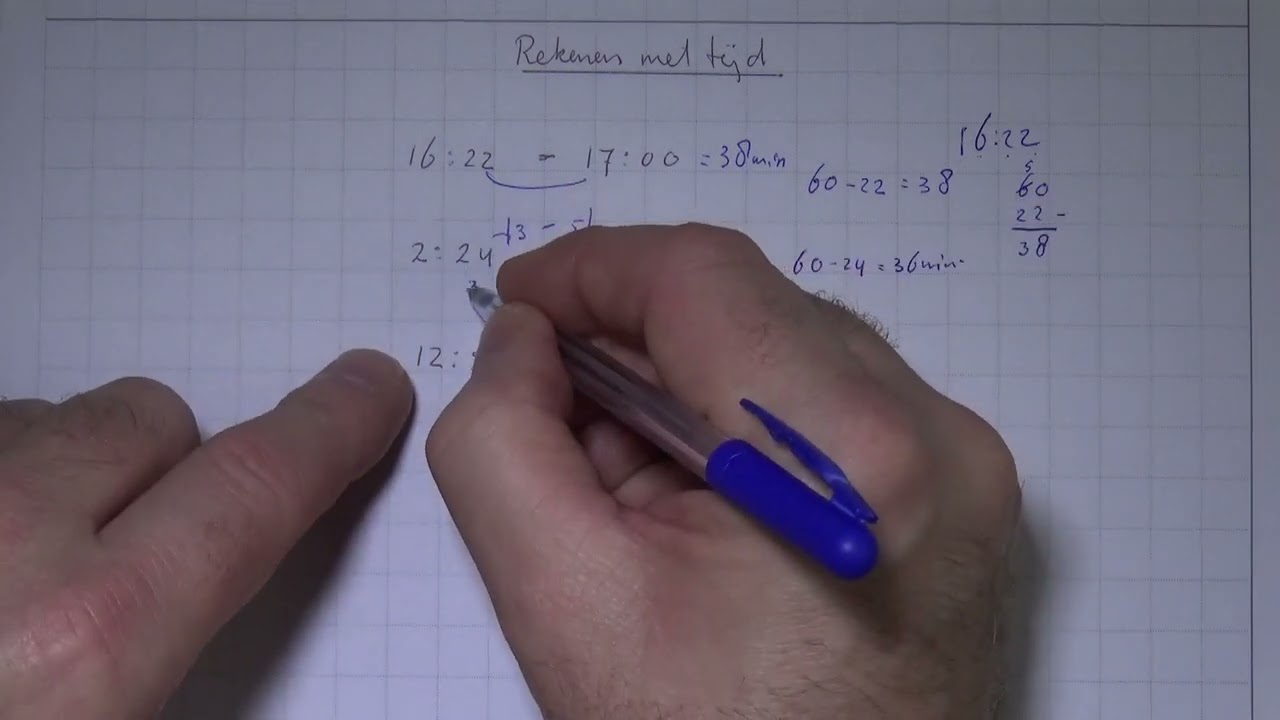 Rekenen met tijd
16:22
16:22 - 17:00 = 38min
60-22 = 38
5
60
22 -
38
2:24
60-24 = 36min.
12: